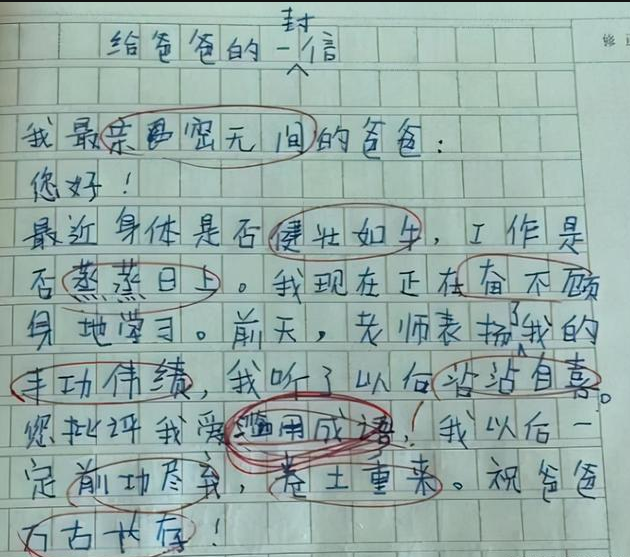 给爸爸的一封信
我最亲密无间的爸爸：
您好！
最近身体是否健壮如牛，工作是
否蒸蒸日上。我现在正在奋不顾
身地学习。前天，老师表扬了我的
丰功伟绩，我听了以后沾沾自喜。
您批评我爱滥用成语！我以后一
定前功尽弃，卷土重来。祝爸爸
万古长存！